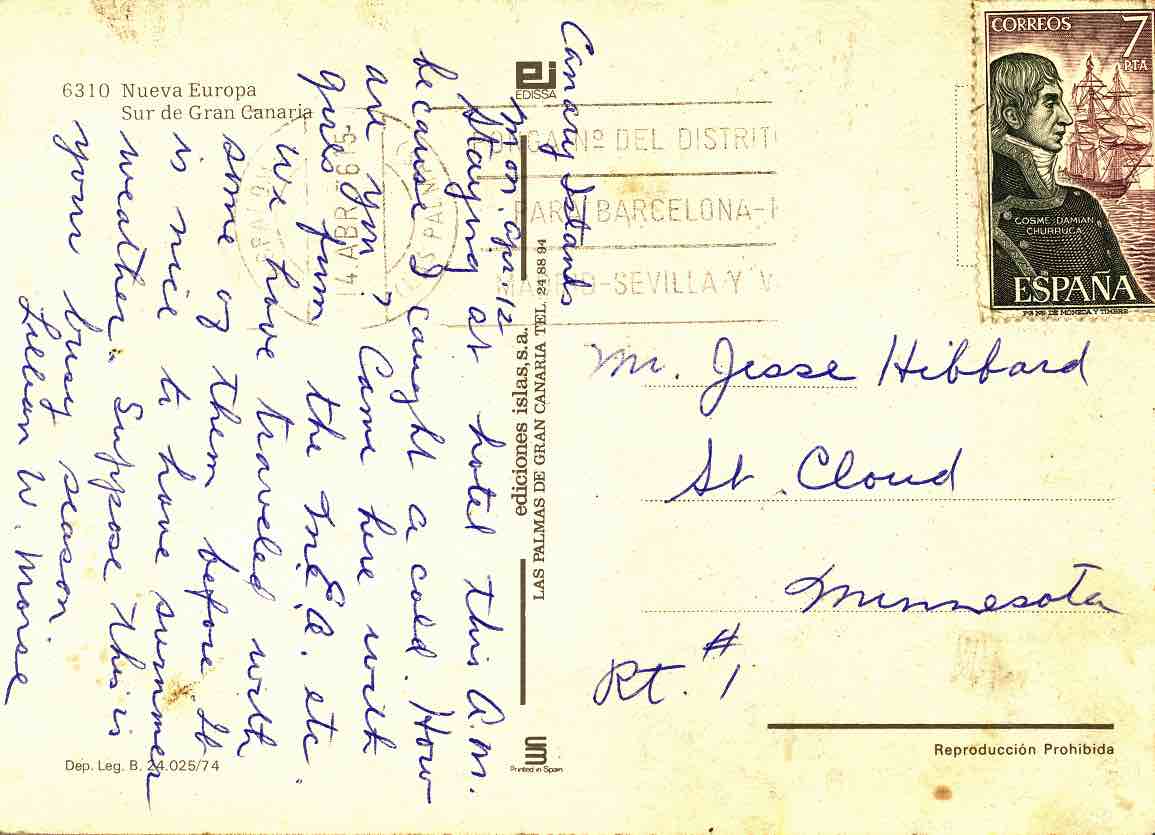 6310 Nueva Europa
Sur de Gran Canaria
EDISSA
Canary Islands
Mon. Apr. 12
Staying at hotel this A.M.
because I caught a cold. How
are you? Came here with
girls from the M.E.A. etc.
We have traveled with
some of them before. It
is nice to have summer
weather. Suppose this is
your busy season
Lillian W. Morse
ediciones islas, s.a.
LAS PALMAS DE GRAN CANARIA TEL. 24 88 94
Printed in Spain
Dep. Leg. B. 24.025/74
14 ABR 76
Nº DEL DISTRIT
PARA BARCELONA-
MADRID-SEVILLA Y V
CORREOS 7
PTA
COSME DAMIAN
CHURRUCA
ESPAÑA
Mr. Jesse Hibbard
St. Cloud
Minnesota
Rt. #1
Reproducción Prohibida